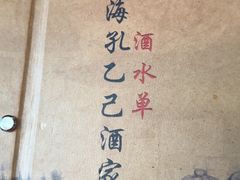 海孔乙己酒家
酒水单